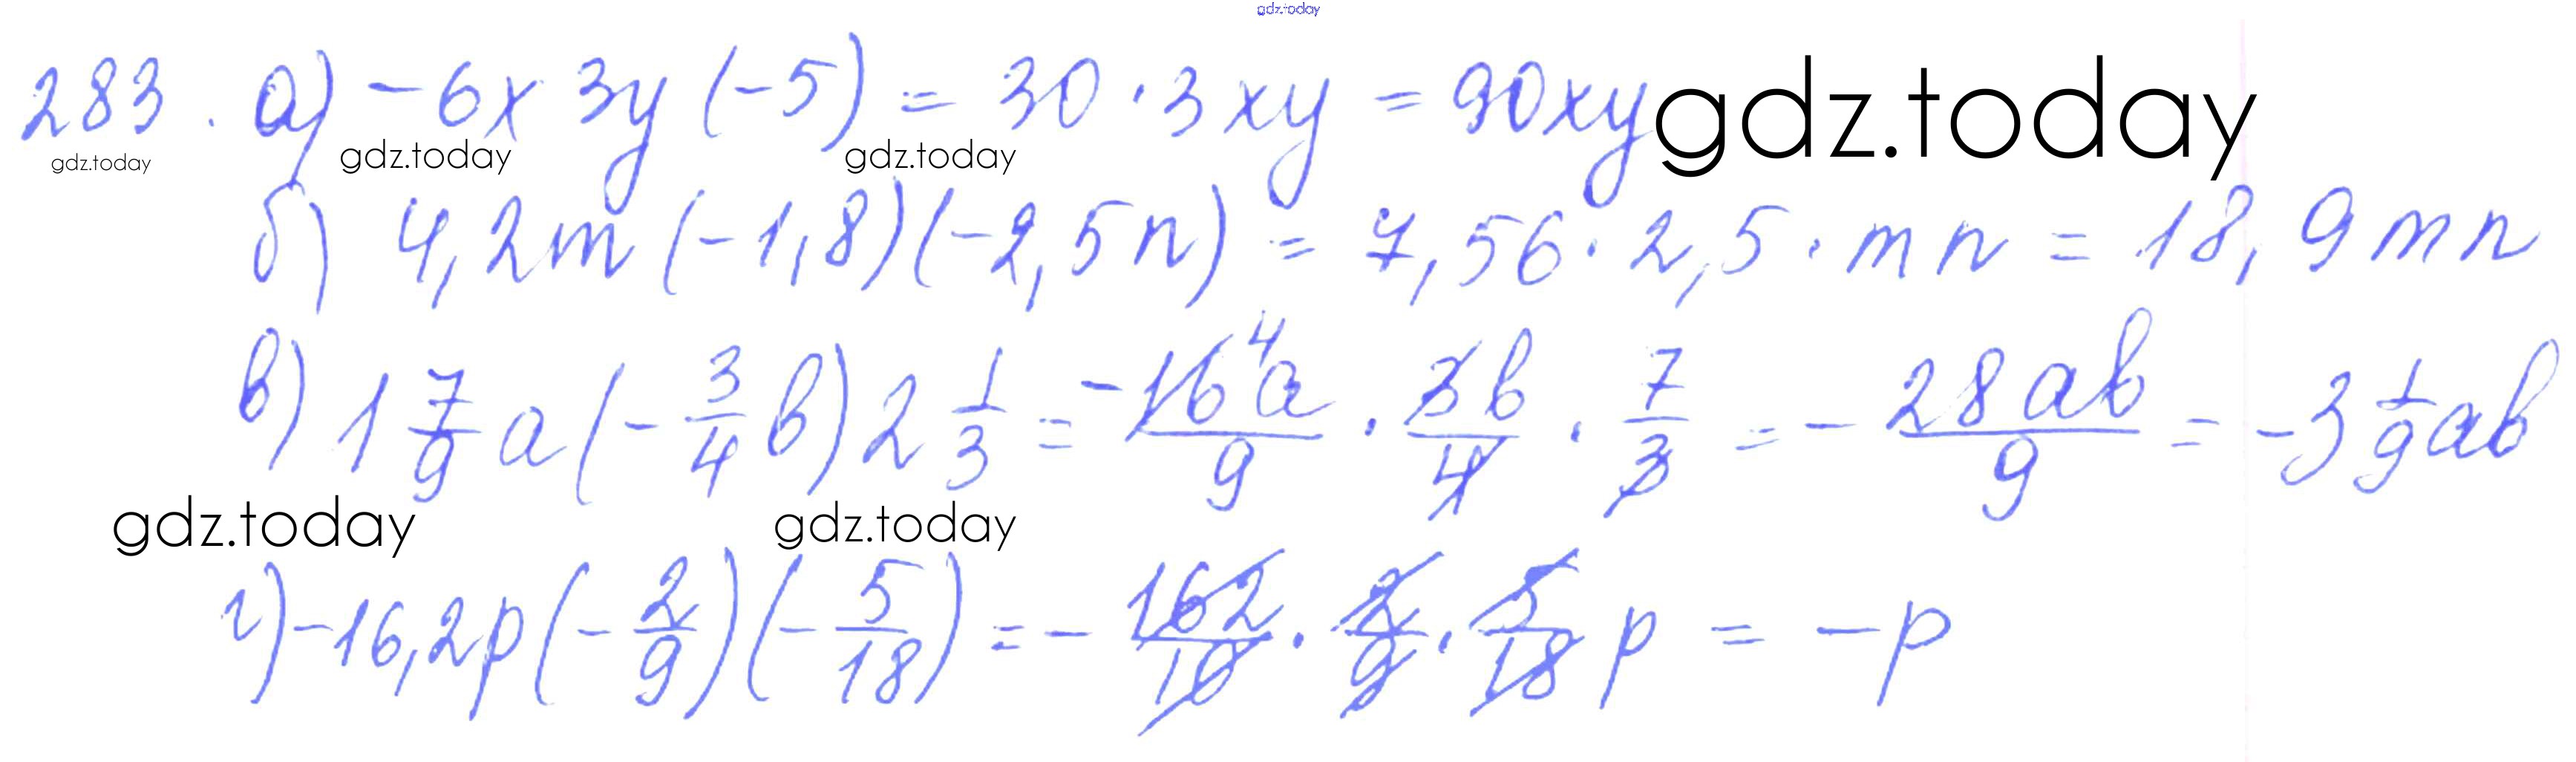 gdz.today
283. а) -6x 3y (-5) = 30 · 3xy = 90xy gdz.today
gdz.today gdz.today gdz.today
б) 4,2m (-1,8)(-2,5n) = 7,56 · 2,5 · mn = 18,9mn
в) 1 7/9 a (- 3/4 b) 2 1/3 = -16 4 a/9 · 3b/4 · 7/3 = - 28ab/9 = -3 1/9 ab
gdz.today gdz.today
г) -16,2p (- 2/9) (- 5/18) = - 162/10 · 2/9 · 5/18 p = -p